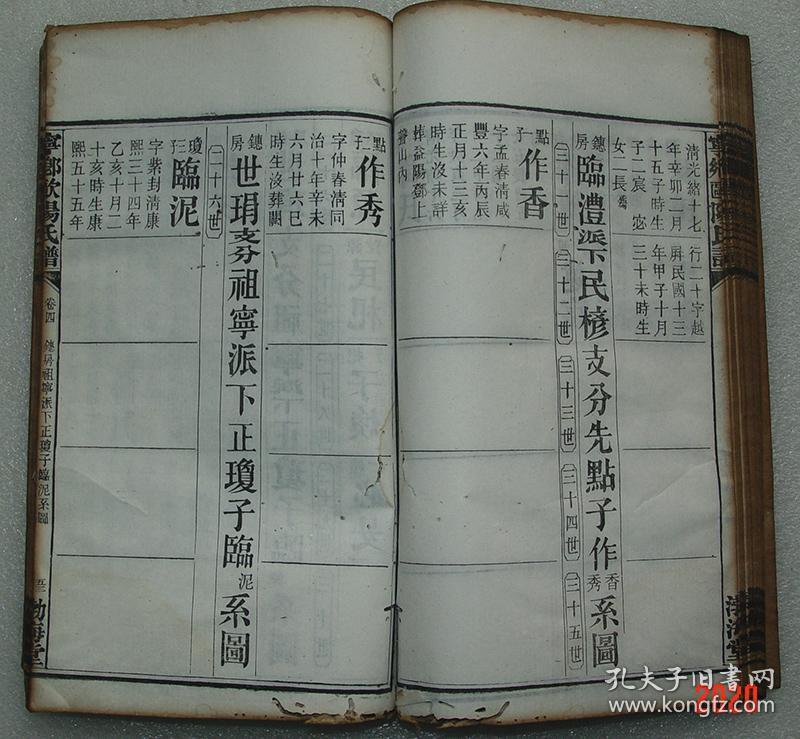 清光緒十七
年辛卯二月
十五子時生
子二宸宓
女二長
行二十字越
屏民國十三
年甲子十月
三十未時生
鏸房臨澧派下民楌支分先點子作香秀系圖
三十一世
三十二世
三十三世
三十四世
三十五世
點子
作香
字孟春清咸
豐六年丙辰
正月十三亥
時生沒未詳
葬益陽鄧上
山內
點子
作秀
字仲春清同
治十年辛未
六月廿六巳
時生沒葬闕
鏸房世琄支分祖寧派下正瓊子臨泥系圖
二十六世
瓊子
臨泥
字紫封清康
熙三十四年
乙亥十月二
十亥時生康
熙五十五年
寧鄉歐陽氏譜
卷四
鏸房祖寧派下正瓊子臨泥系圖
渤海堂
孔夫子旧书网
kongfz.com
2020